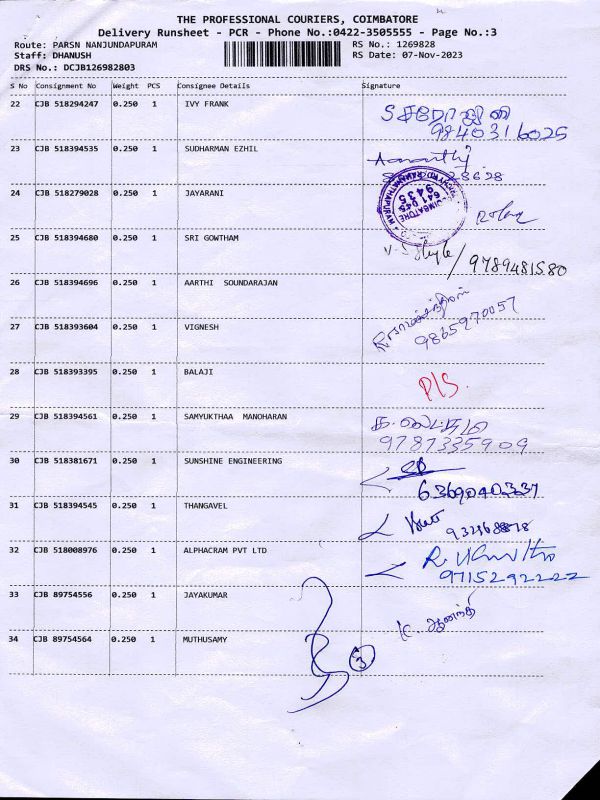 THE PROFESSIONAL COURIERS, COIMBATORE
Delivery Runsheet - PCR - Phone No.:0422-3505555 - Page No.:3
Route: PARSN NANJUNDAPURAM RS No.: 1269828
Staff: DHANUSH RS Date: 07-Nov-2023
DRS No.: DCJB126982803
S No Consignment No Weight PCS Consignee Details Signature
22 CJB 518294247 0.250 1 IVY FRANK
9840316025
23 CJB 518394535 0.250 1 SUDHARMAN EZHIL
24 CJB 518279028 0.250 1 JAYARANI
COIMBATORE 641 045 9435
25 CJB 518394680 0.250 1 SRI GOWTHAM
9789481580
26 CJB 518394696 0.250 1 AARTHI SOUNDARAJAN
27 CJB 518393604 0.250 1 VIGNESH
9865970057
28 CJB 518393395 0.250 1 BALAJI
P/S.
29 CJB 518394561 0.250 1 SAMYUKTHAA MANOHARAN
9787335909
30 CJB 518381671 0.250 1 SUNSHINE ENGINEERING
6369040337
31 CJB 518394545 0.250 1 THANGAVEL
32 CJB 518008976 0.250 1 ALPHACRAM PVT LTD
9715292222
33 CJB 89754556 0.250 1 JAYAKUMAR
34 CJB 89754564 0.250 1 MUTHUSAMY
3